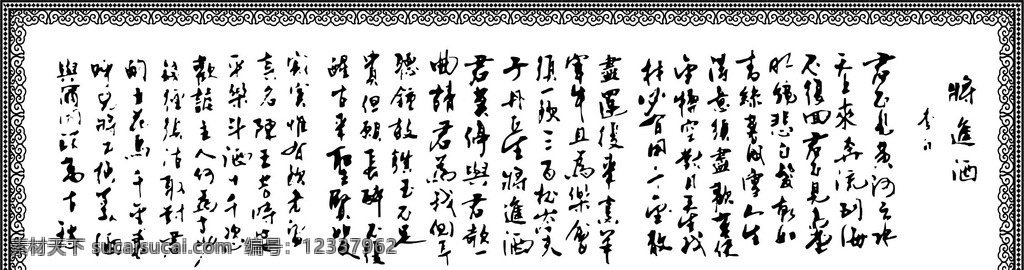 將進酒
李白
君不見黃河之水
天上來奔流到海
不復回君不見高堂
明鏡悲白髮朝如
青絲暮成雪人生
得意須盡歡莫使
金樽空對月天生我
材必有用千金散
盡還復來烹羊
宰牛且爲樂會
須一飲三百杯岑夫
子丹丘生將進酒
君莫停與君歌一
曲請君爲我側耳
聽鐘鼓饌玉不足
貴但願長醉不復
醒古來聖賢皆
寂寞惟有飲者留
其名陳王昔時宴
平樂斗酒十千恣
歡謔主人何爲言少
錢徑須沽取對君
酌五花馬千金裘
呼兒將出換美酒
與爾同銷萬古愁
素材天下 sucaisucai.com 编号：12337962